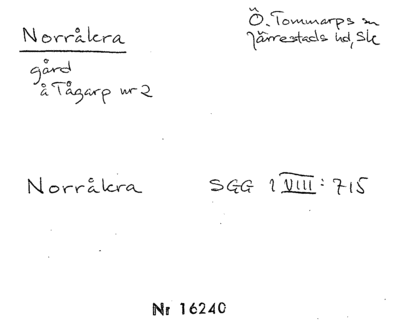 Norråkra
Ö. Tommarps sn
Järrestads hd, Sk
gård
å Tågarp nr 2
Norråkra SGG 1 VIII: 715
Nr 16240